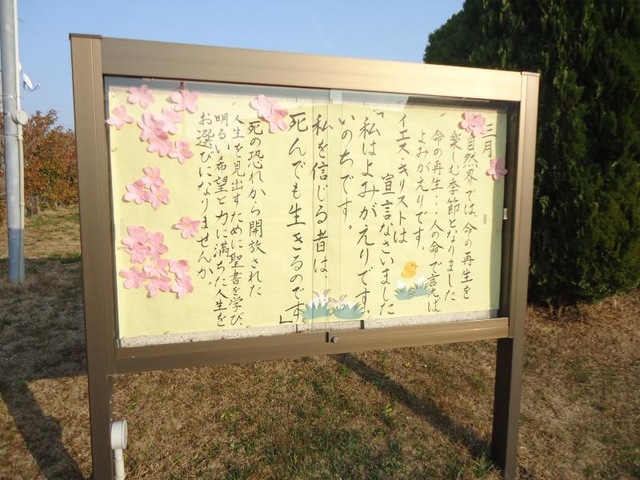 三月
自然界では、命の再生を
楽しむ季節となりました
命の再生…人の命で言えば
よみがえりです。
イエス・キリストは
宣言なさいました
「私はよみがえりです、
いのちです。
私を信じる者は、
死んでも生きるのです。」
死の恐れから開放された
人生を見出すために聖書を学び
明るい希望と力に満ちた人生を
お選びになりませんか